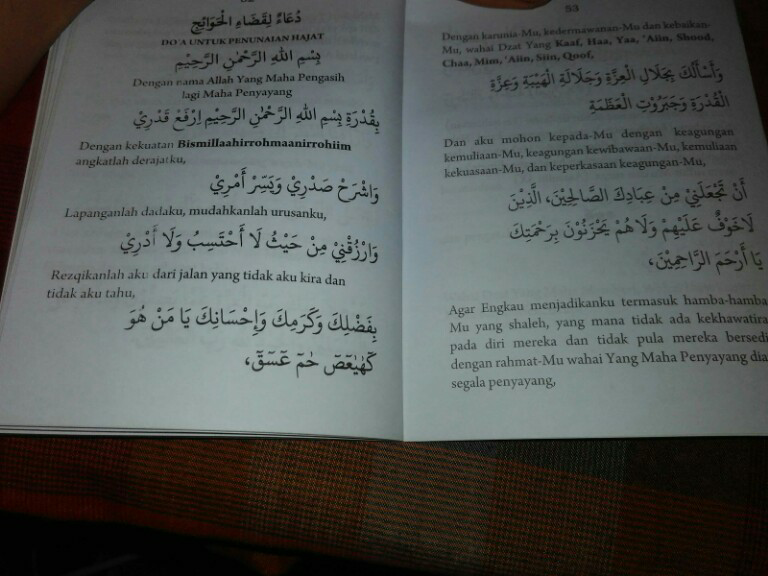 دُعَاءٌ لِقَضَاءِ الْحَوَائِجِ
DO'A UNTUK PENUNAIAN HAJAT
بِسْمِ اللهِ الرَّحْمٰنِ الرَّحِيْمِ
Dengan nama Allah Yang Maha Pengasih
lagi Maha Penyayang
بِقُدْرَةِ بِسْمِ اللهِ الرَّحْمٰنِ الرَّحِيْمِ اِرْفَعْ قَدْرِيْ
Dengan kekuatan Bismillaahirrohmaanirrohiim
angkatlah derajatku,
وَاشْرَحْ صَدْرِيْ وَيَسِّرْ أَمْرِيْ
Lapanganlah dadaku, mudahkanlah urusanku,
وَارْزُقْنِيْ مِنْ حَيْثُ لَا أَحْتَسِبُ وَلَا أَدْرِيْ
Rezqikanlah aku dari jalan yang tidak aku kira dan
tidak aku tahu,
بِفَضْلِكَ وَكَرَمِكَ وَإِحْسَانِكَ يَا مَنْ هُوَ
كٓهٰيٰعٓصٓ حٰمٓ عٓسٓقٓ،
53
Dengan karunia-Mu, kedermawanan-Mu dan kebaikan-
Mu, wahai Dzat Yang Kaaf, Haa, Yaa, 'Aiin, Shood,
Chaa, Mim, 'Aiin, Siin, Qoof,
وَأَسْأَلُكَ بِجَلَالِ الْعِزَّةِ وَجَلَالَةِ الْهَيْبَةِ وَعِزَّةِ
الْقُدْرَةِ وَجَبَرُوْتِ الْعَظَمَةِ
Dan aku mohon kepada-Mu dengan keagungan
kemuliaan-Mu, keagungan kewibawaan-Mu, kemuliaan
kekuasaan-Mu, dan keperkasaan keagungan-Mu,
أَنْ تَجْعَلَنِيْ مِنْ عِبَادِكَ الصَّالِحِيْنَ، الَّذِيْنَ
لَا خَوْفٌ عَلَيْهِمْ وَلَا هُمْ يَحْزَنُوْنَ بِرَحْمَتِكَ
يَا أَرْحَمَ الرَّاحِمِيْنَ،
Agar Engkau menjadikanku termasuk hamba-hamba
Mu yang shaleh, yang mana tidak ada kekhawatira
pada diri mereka dan tidak pula mereka bersedi
dengan rahmat-Mu wahai Yang Maha Penyayang dia
segala penyayang,